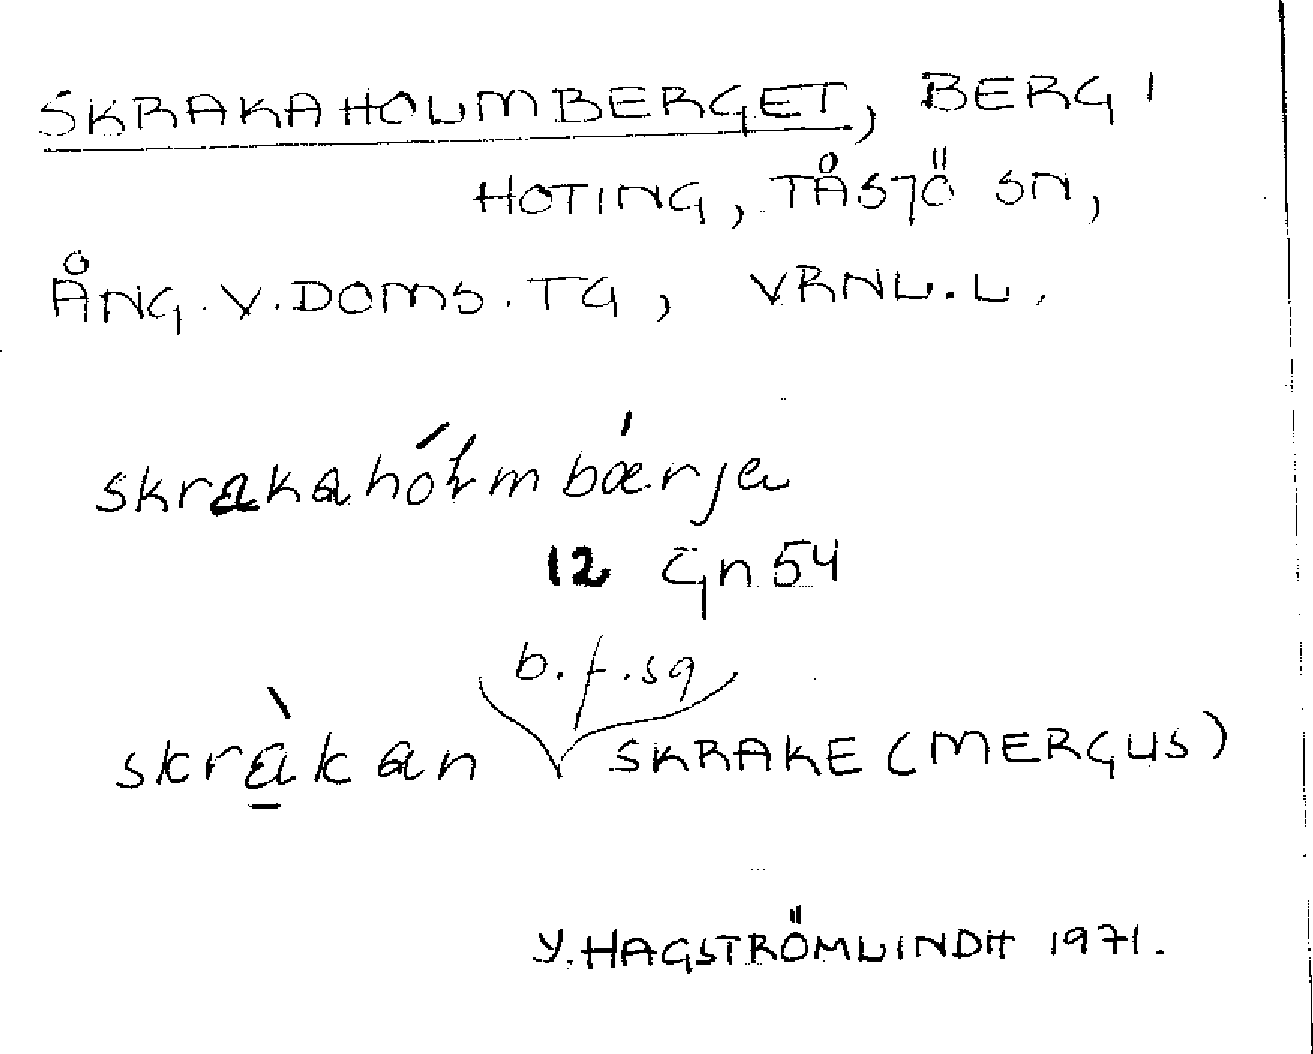 SKRAKAHOLMBERGET, BERG I
HOTING, TÅSJÖ SN,
ÅNG. V. DOMS. TG, VRNL. L.
skrakahólmbǽrja
12 Gn 54
b. f. sg
skràkan SKRAKE (MERGUS)
Y. HAGSTRÖMLINDH 1971.